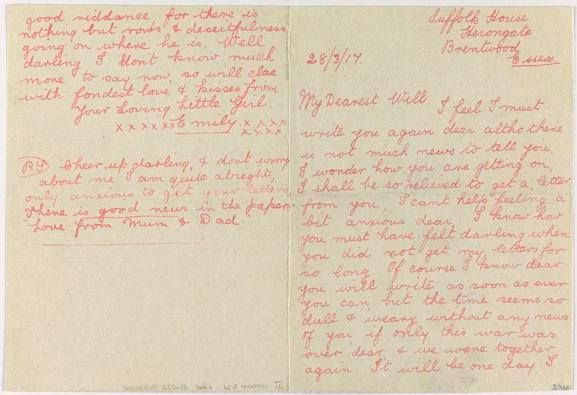 good riddance for there is
nothing but rows & deceitfulness
going on where he is. Well
darling I dont know much
more to say now, so will close
with fondest love & kisses from
Your Loving Little Girl.
x x x x x x Emily x x x x
x x x x
PS Cheer up darling, & dont worry
about me I am quite alright,
only anxious to get your letters
there is good news in the paper.
Love from Mum & Dad.
Suffolk House
Herongate
Brentwood
Essex
28/3/17.
My Dearest Will. I feel I must
write you again dear altho there
is not much news to tell you,
I wonder how you are getting on,
I shall be so relieved to get a letter
from you, I cant help feeling a
bit anxious dear, I know how
you must have felt darling when
you did not get my letters for
so long. Of course I know dear
you will write as soon as ever
you can but the time seems so
dull & weary without any news
of you if only this war was
over dear & we were together
again. It will be one day I